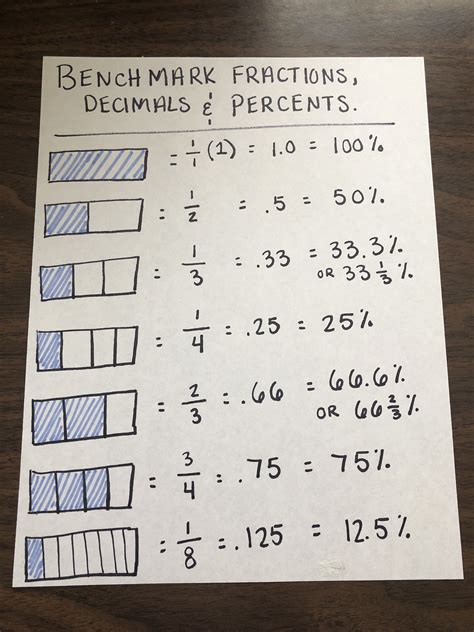 BENCHMARK FRACTIONS,
DECIMALS & PERCENTS.
= 1/1 (1) = 1.0 = 100%
= 1/2 = .5 = 50%
= 1/3 = .33 = 33.3%
OR 33 1/3 %
= 1/4 = .25 = 25%
= 2/3 = .66 = 66.6%
OR 66 2/3 %
= 3/4 = .75 = 75%
= 1/8 = .125 = 12.5%